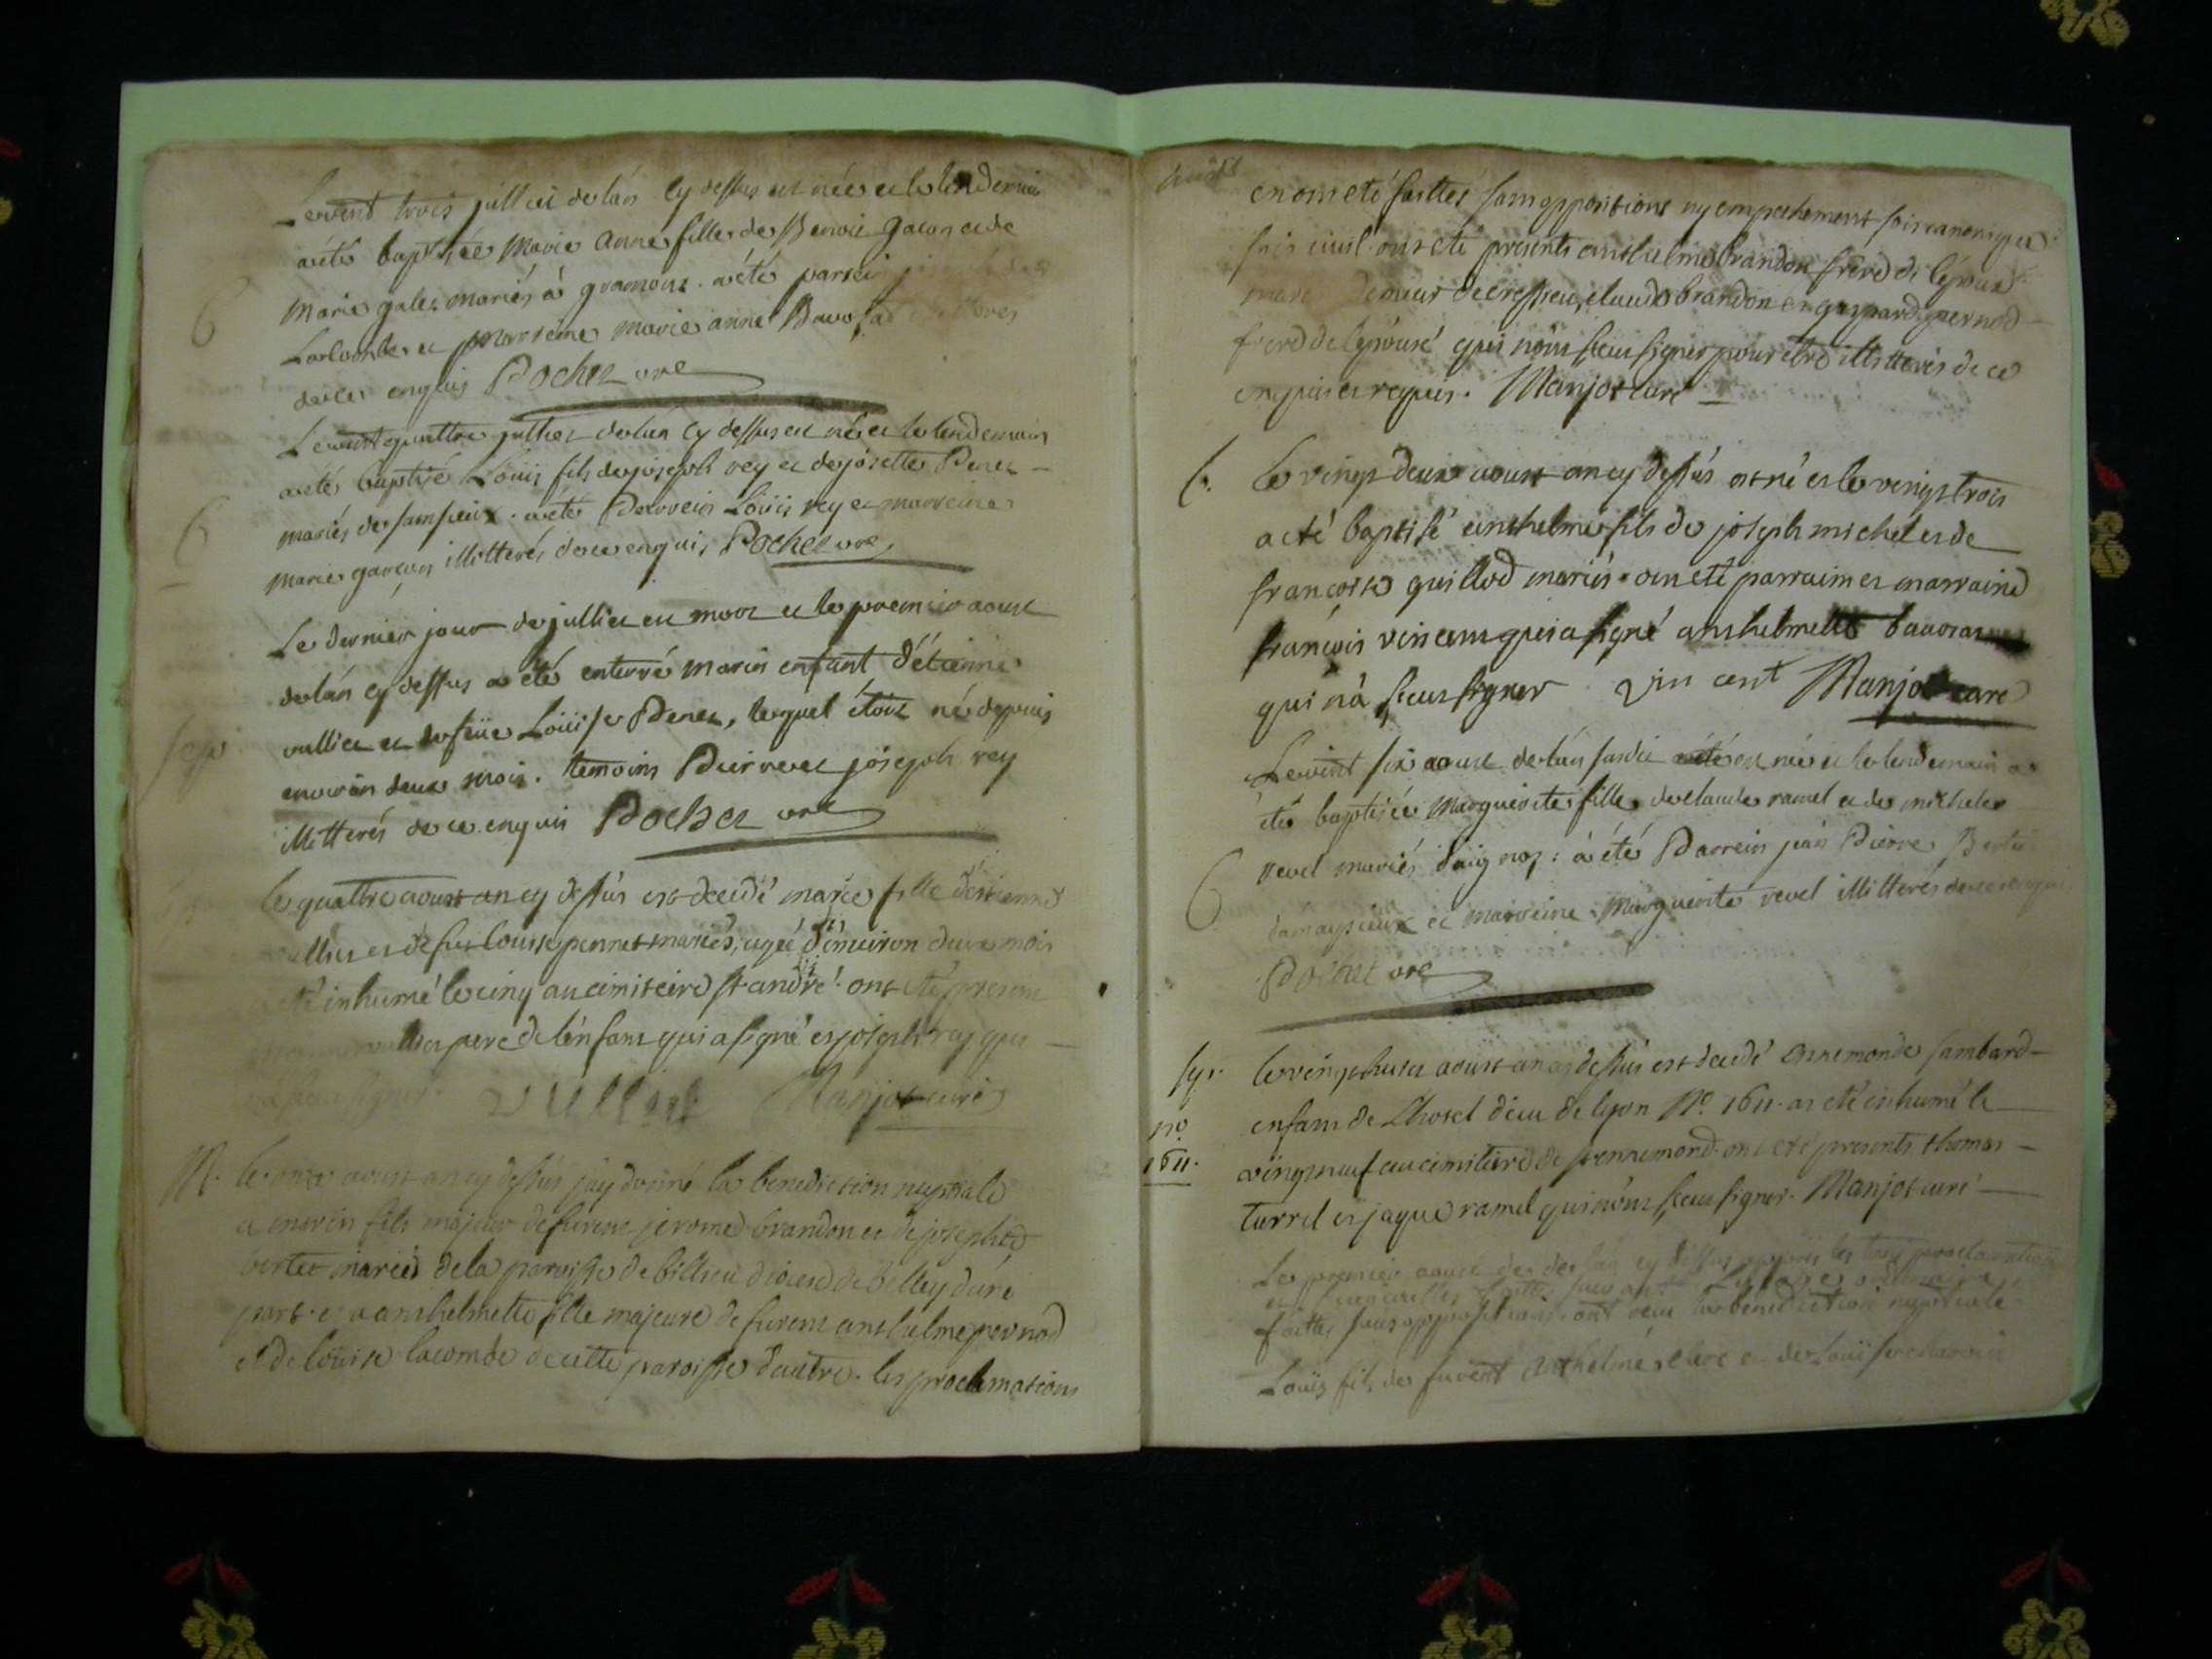 Levint trois juillet de lan cy dessus est née et le lendemain
a été baptisée Marie Anne fille de Benoit gacon et de
Marie galet mariés à gramont. a été parrein
Lacombe et marreine marie anne Bavosat
de ce enquis Pochet vre
Levint quattre juillet de lan cy dessus est né et le lendemain
a été baptisé Louis fils de joseph rey et de josette Peret
mariés de sampieux. a été Parrein Louis rey et marreine
Marie garçun illitterés de ce enquis Pochet vre
Le dernier jour de juillet est mort et le premier aoust
de lan cy dessus a été enterré marin enfant d'étienne
vulliet et de feüe Loüise Penet, lequel étoit né depuis
environ deux mois. temoins Pierre et joseph rey
illitterés de ce enquis Pochet vre
le quattre aoust an cy dessus est decedé marie fille d'estienne
vulliet et de feue louise pernet mariés, agée d'environ deux mois
a été inhumé le cinq au cimitiere st andré. ont été present
vulliet pere de l'enfant qui a signé et joseph rey qui
n'a sceu signer. vulliet Manjot curé
M. le onze aoust an cy dessus j'ay donné la benediction nuptiale
a marin fils majeur de furent jerome brandon et de josephte
bertet mariés de la paroisse de billieu diocese de belley d'une
part. et a anthelmette fille majeure de furent anthelme pernod
et de loüise lacombe de cette paroisse d'autre. les proclamations
en ont eté faittes sans oppositions ny empechement soit canonique
soit civil. ont eté presents anthelme brandon frere de l'epoux
marc demeur de cressieu, claude brandon et gaspard pernod
frere de l'epouse qui n'ont sceu signer pour etre illitterés de ce
enquis et requis. Manjot curé
b. le vingt deux aoust an cy dessus est né et le vingt trois
a eté baptisé anthelme fils de joseph michel et de
françoise guillod mariés. ont eté parrain et marraine
françois vincent qui a signé anthelmette bavosat
qui n'a sceu signer vin cent Manjot curé
Levint six aoust de lan susdit est née et le lendemain a
été baptisée Marguerite fille de claude ramel et de michele
revel mariés d'aignoz: a été Parrein jean Pierre Bertet
d'amaysieux et marreine Marguerite revel illitterés de ce enquis
Pochet vre
sep. le vingt huit aoust an cy dessus est decedé ennemonde sambard
no. enfant de l'hotel dieu de lyon No. 1611. et a eté inhumé le
1611. vingt neuf au cimitiere de st ennemond. ont eté presents thomas
turrel et jaque ramel qui n'ont sceu signer. Manjot curé
Le premier aoust de lan cy dessus apprès les trois proclamations
faittes sans opposition. ont reçu la benediction nuptiale
Louis fils de furent Anthelme clerc et de Louise charvin